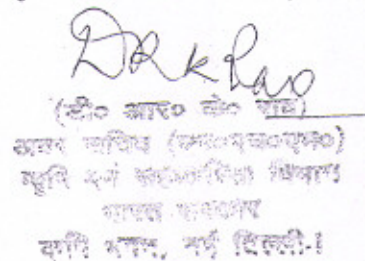 DRK Rao
(डी० आर० के० राव)
अवर सचिव (एम०एच०एम०)
कृषि एवं सहकारिता विभाग
भारत सरकार
कृषि भवन, नई दिल्ली-1